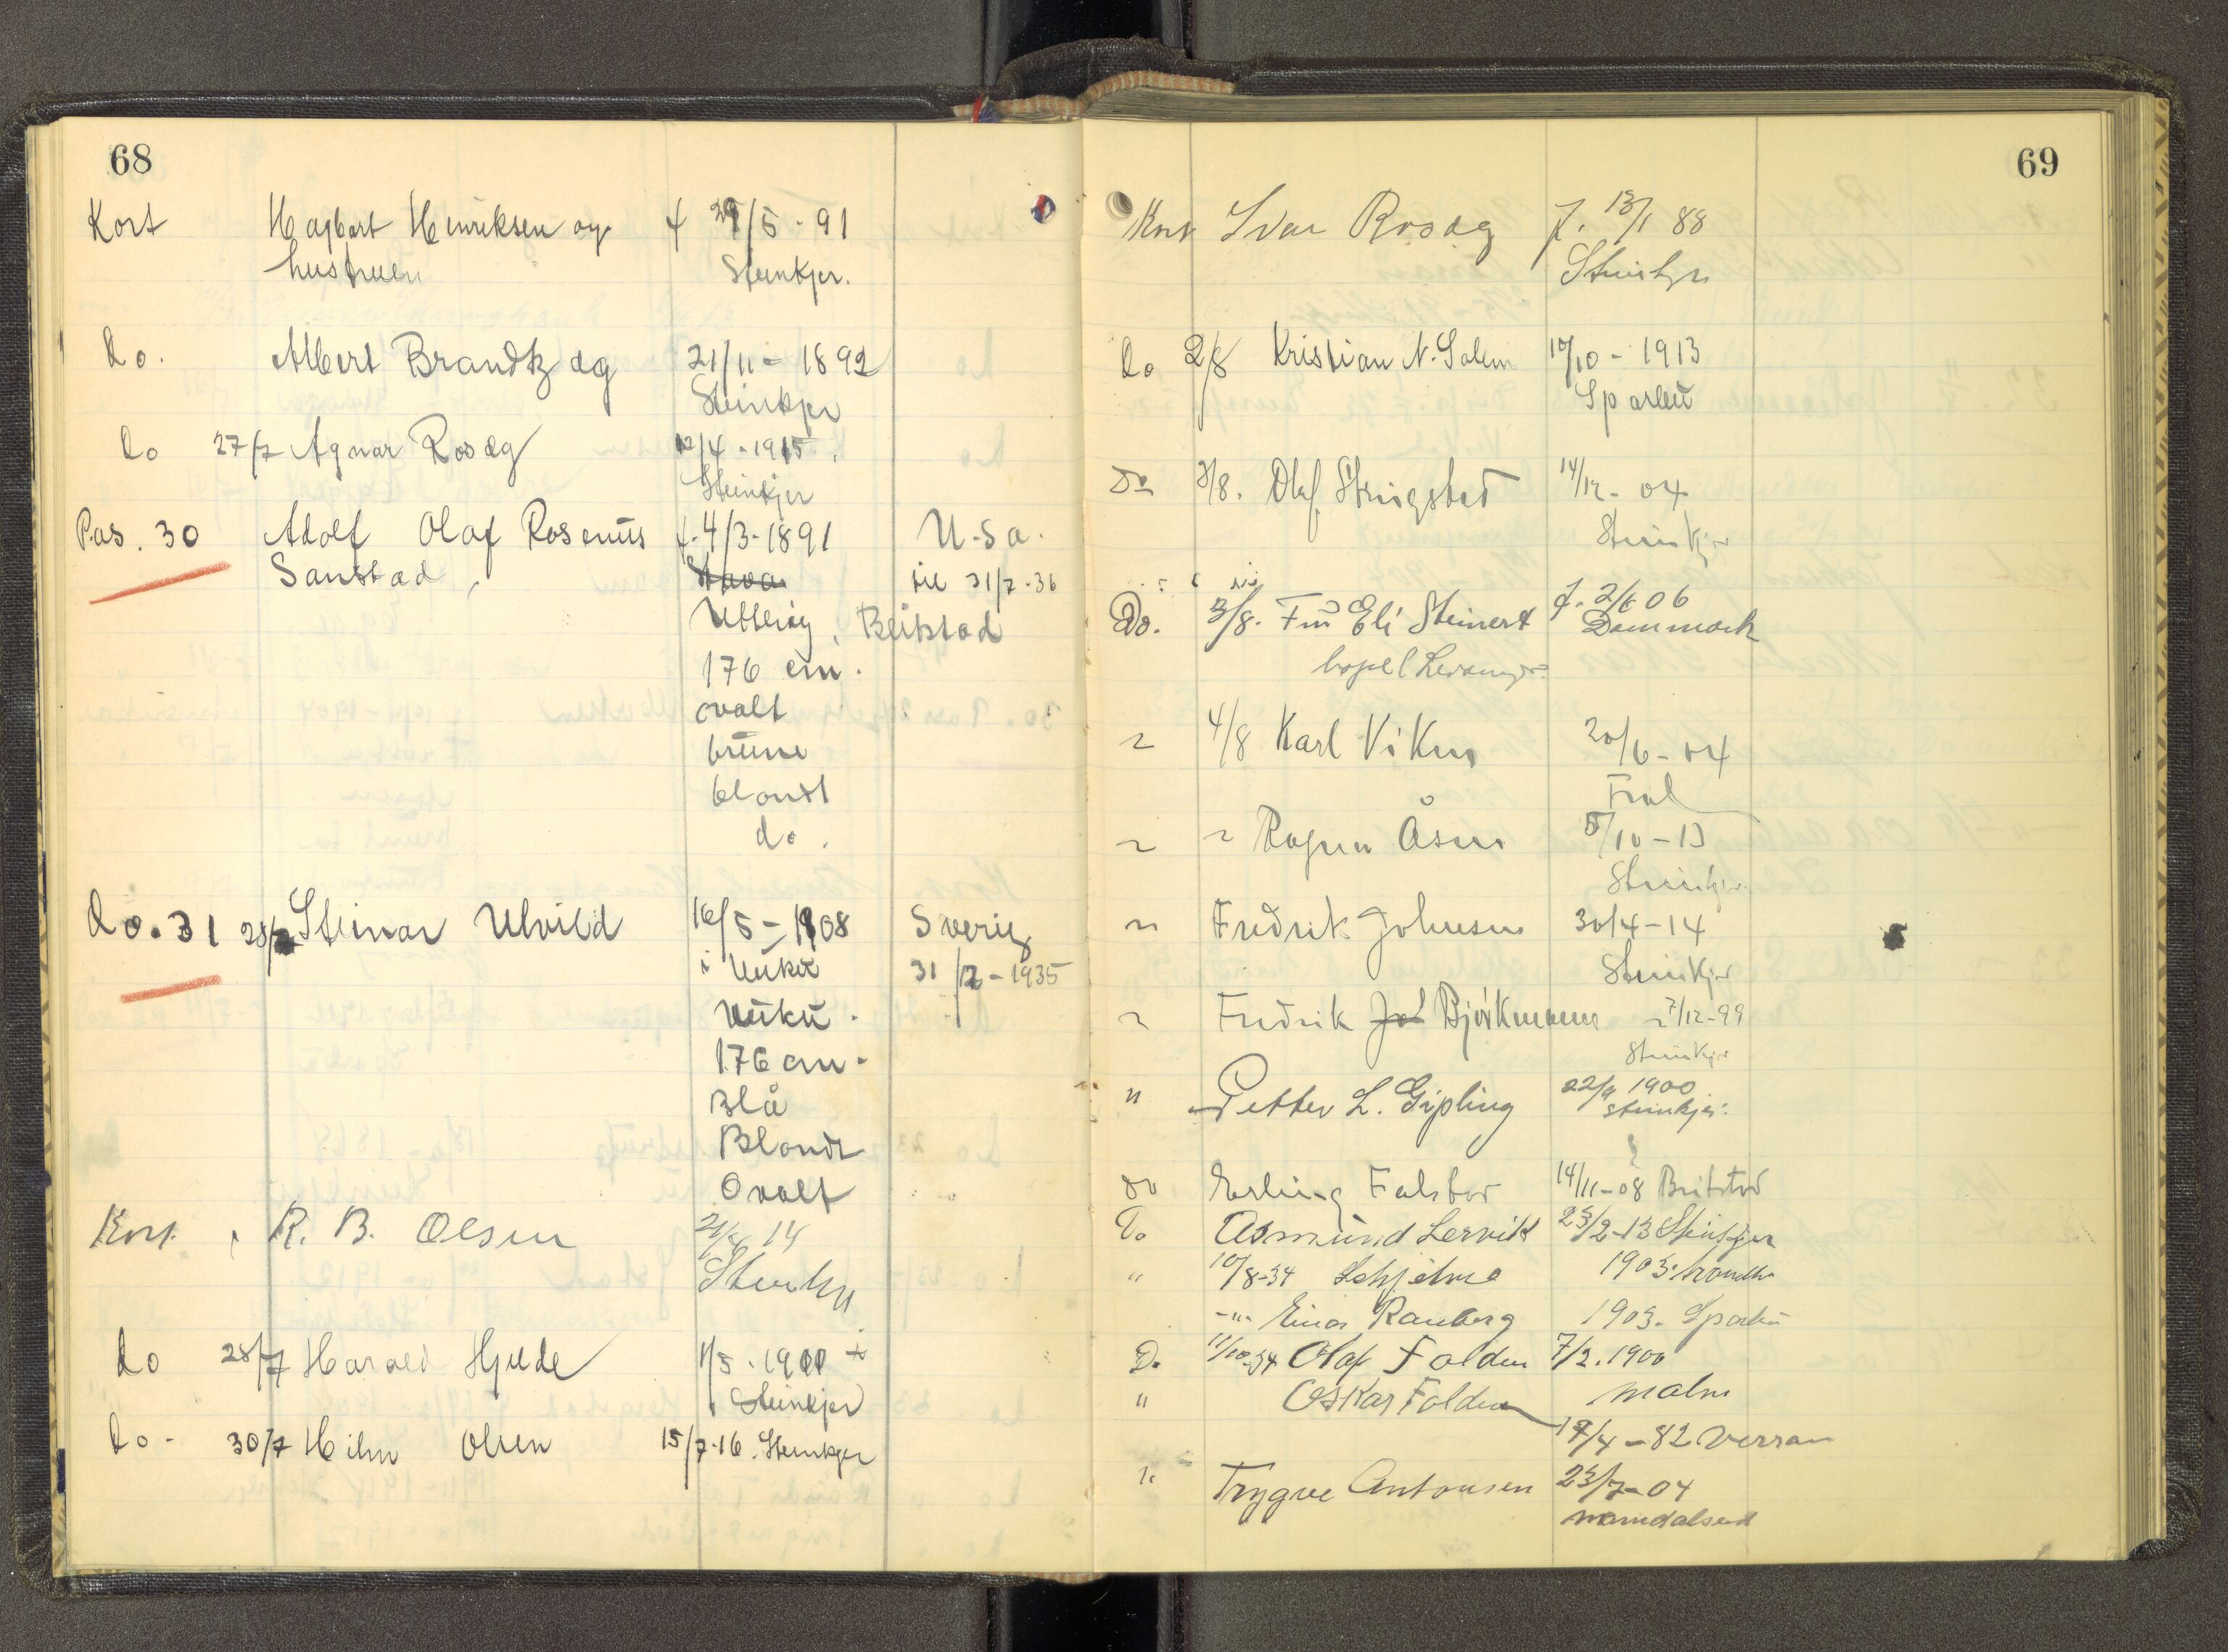 68
Kort Hagbart Henriksen og f 29/5 - 91
hustruen Steinkjer.
do. Albert Brandtzæg 21/11 - 1892
Steinkjer
do 27/7 Agnar Rosæg 12/4 - 1915.
Steinkjer
Pas. 30 Adolf Olaf Rosenius f. 4/3 - 1891 U.S.a.
Sanstad, til 31/7 - 36
Utterøy, Beitstad
176 cm.
ovalt
brune
blondt
do.
do. 31 28/7 Steinar Ulvild 16/5 - 1908 Sverig
i 31/12 - 1935
176 cm -
Blå
Blondt
Ovalt
Kort. R. B. Olsen 14
Steinkjer
do 28/7 Harald Hjelde 1/5 - 1900
Steinkjer
do - 30/7 Hilm Olsen 15/7 - 16. Steinkjer
69
Kort Ivar Rosæg f. 13/1 88
Steinkjer
do 2/8 Kristian N. Salem 10/10 - 1913
Sparbu
Do 3/8. Olaf Stringsted 14/12 - 04
Steinkjer
Do. 3/8. Eli Steinert f. 2/6 06
Dammark
bopel Levanger
4/8 Karl Viken 20/6 - 04
Frol
" Åsen 5/10 - 13
Steinkjer
" Fredrik Johnsen 30/4 - 14
Steinkjer
" Fredrik Bjørkmanns 7/12 - 99
Steinkjer
" Petter L. Gipling 22/9 1900
Steinkjer.
Do Erling Falstad 14/11 - 08 Beitstad
Do Asmund Lervik 23/2 - 13 Steinkjer
" 10/8 - 34 Schjelme 1903.
-"- Einar Ranberg 1903. Sparbu
Do 11/10 - 34 Olaf Folden 7/2. 1900
" Oskar Folden Malm
19/4 - 82 Verran
" Trygve Antonsen 23/7 - 04
Namdalseid